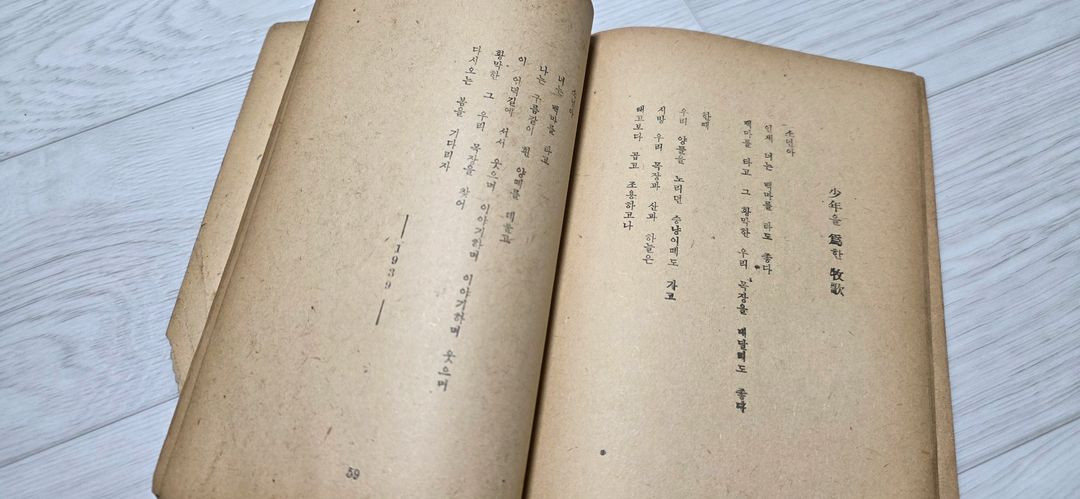 少年을 爲한 牧歌
소년아
인제 너는 백마를 타도 좋다
백마를 타고 그 황막한 우리 목장을 내달려도 좋다
한때
우리 양들을 노리던 승냥이떼도 가고
지방 우리 목장과 산과 하늘은
태고보다 곱고 조용하고나
소년아
너는 백마를 타고
나는 구름같이 흰 양떼를 데불고
이 언덕길에 서서 웃으며 이야기하며 이야기하며 웃으며
황막한 그 우리 목장을 찾어
다시오는 봄을 기다리자
—1939—
59